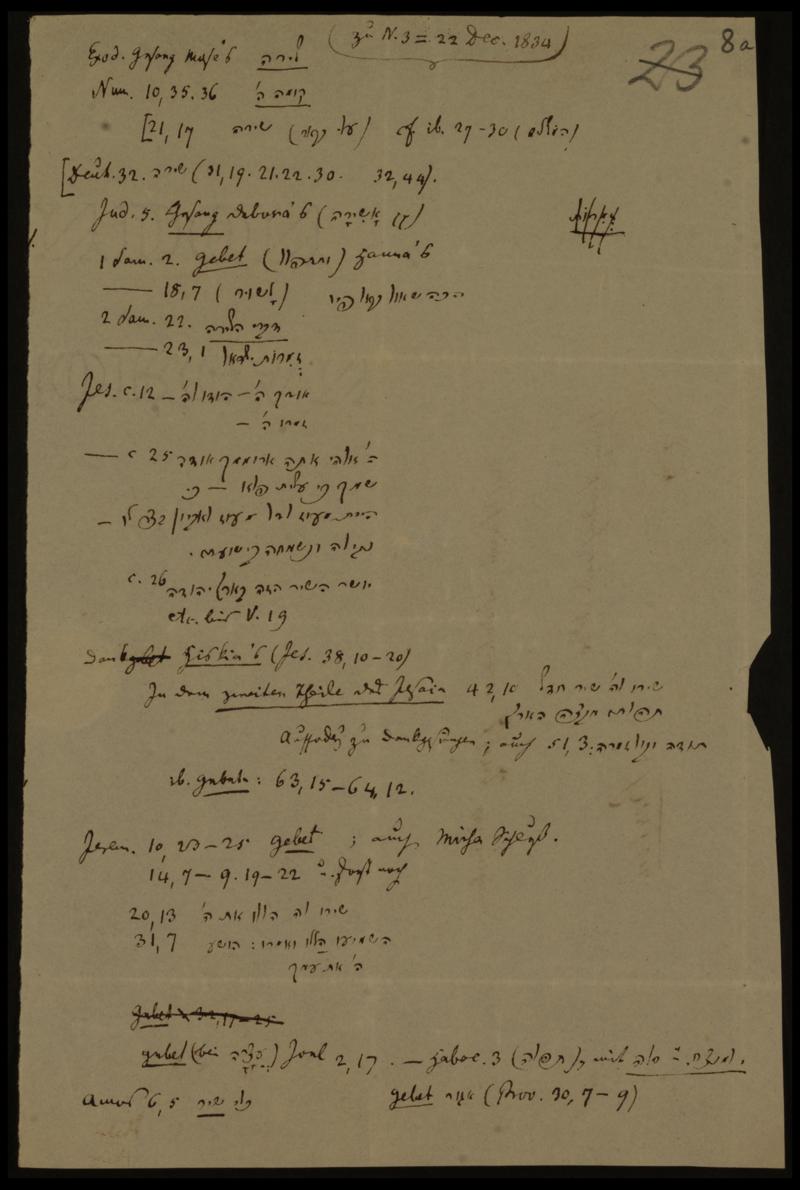 (zu N. 3 = 22 Dec. 1834)
23 8a
Exod. Gesang Mose's שירה
Num. 10, 35. 36 קומה ה'
[21, 17 שירה (עלי באר) cf ib. 27-30 (המשלים)
[Deut. 32. שירה (31, 19. 21. 22. 30. 32, 44).
Jud. 5. Gesang Debora's (אשירה)
1 Sam. 2. Gebet (ותתפלל) Hanna's
—— 18, 7 (לשיר) הכה שאול באלפיו
2 Sam. 22. דברי השירה
—— 23, 1 זמרות ישראל
Jes. c. 12 — אודך ה' — הודו לה'
זמרו ה' —
—— c 25 ה' אלהי אתה ארוממך אודה
שמך כי עשית פלא — כי
היית מעוז לדל מעוז לאביון
נגילה ונשמחה בישועתו.
c. 26 יושר השיר הזה בארץ יהודה
etc. bis V. 19
Dankgebet Hiskia's (Jes. 38, 10-20)
In dem zweiten Theile des Jesaia 42, 10 שירו לה' שיר חדש
תהלתו מקצה הארץ
zu Dankgesängen; auch 51, 3: תודה וקול זמרה
ib. Gebete: 63, 15-64, 12.
Jerem. 10, 23-25 Gebet; auch Micha Schluß.
14, 7-9. 19-22 u. sonst noch
20, 13 שירו לה' הללו את ה'
31, 7 השמיעו הללו ואמרו: הושע
ה' את עמך
Gebet 32, 17-25
Gebet (bei) Joel 2, 17. — Habac. 3 (תפלה), mit למנצח u סלה.
Amos 6, 5 כלי שיר Gebet אגור (Prov. 30, 7-9)